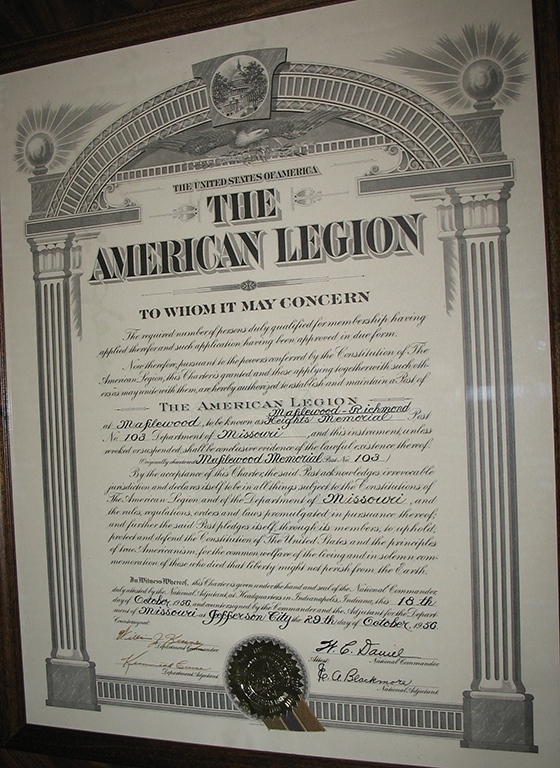 THE UNITED STATES OF AMERICA
THE
AMERICAN LEGION
TO WHOM IT MAY CONCERN
The required number of persons duly qualified for membership having
applied therefor and such application having been approved in due form.
Now therefore, pursuant to the powers conferred by the Constitution of The
American Legion, this Charter is granted and those applying together with such oth-
ers as may unite with them, are hereby authorized to establish and maintain a Post of
THE AMERICAN LEGION
Maplewood-Richmond
at Maplewood, to be known as Heights Memorial Post
No. 103 Department of Missouri, and this instrument, unless
revoked or suspended, shall be conclusive evidence of the lawful existence thereof.
Originally chartered Maplewood Memorial Post No. 103
By the acceptance of this Charter, the said Post acknowledges irrevocable
jurisdiction and declares itself to be in all things subject to the Constitutions of
The American Legion and of the Department of Missouri, and
the rules, regulations, orders and laws promulgated in pursuance thereof;
and further the said Post pledges itself, through its members, to uphold,
protect and defend the Constitution of The United States and the principles
of true Americanism, for the common welfare of the living and in solemn com-
memoration of those who died that liberty might not perish from the Earth.
In Witness Whereof, this Charter is given under the hand and seal of the National Commander,
duly attested by the National Adjutant, at Headquarters in Indianapolis, Indiana, this 18th
day of October, 1956, and countersigned by the Commander and the Adjutant for the Depart-
ment of Missouri at Jefferson City the 29th day of October, 1956
Countersigned:
Department Commander
Department Adjutant
W. C. Daniel
National Commander
Attest:
E. A. Blackmore
National Adjutant